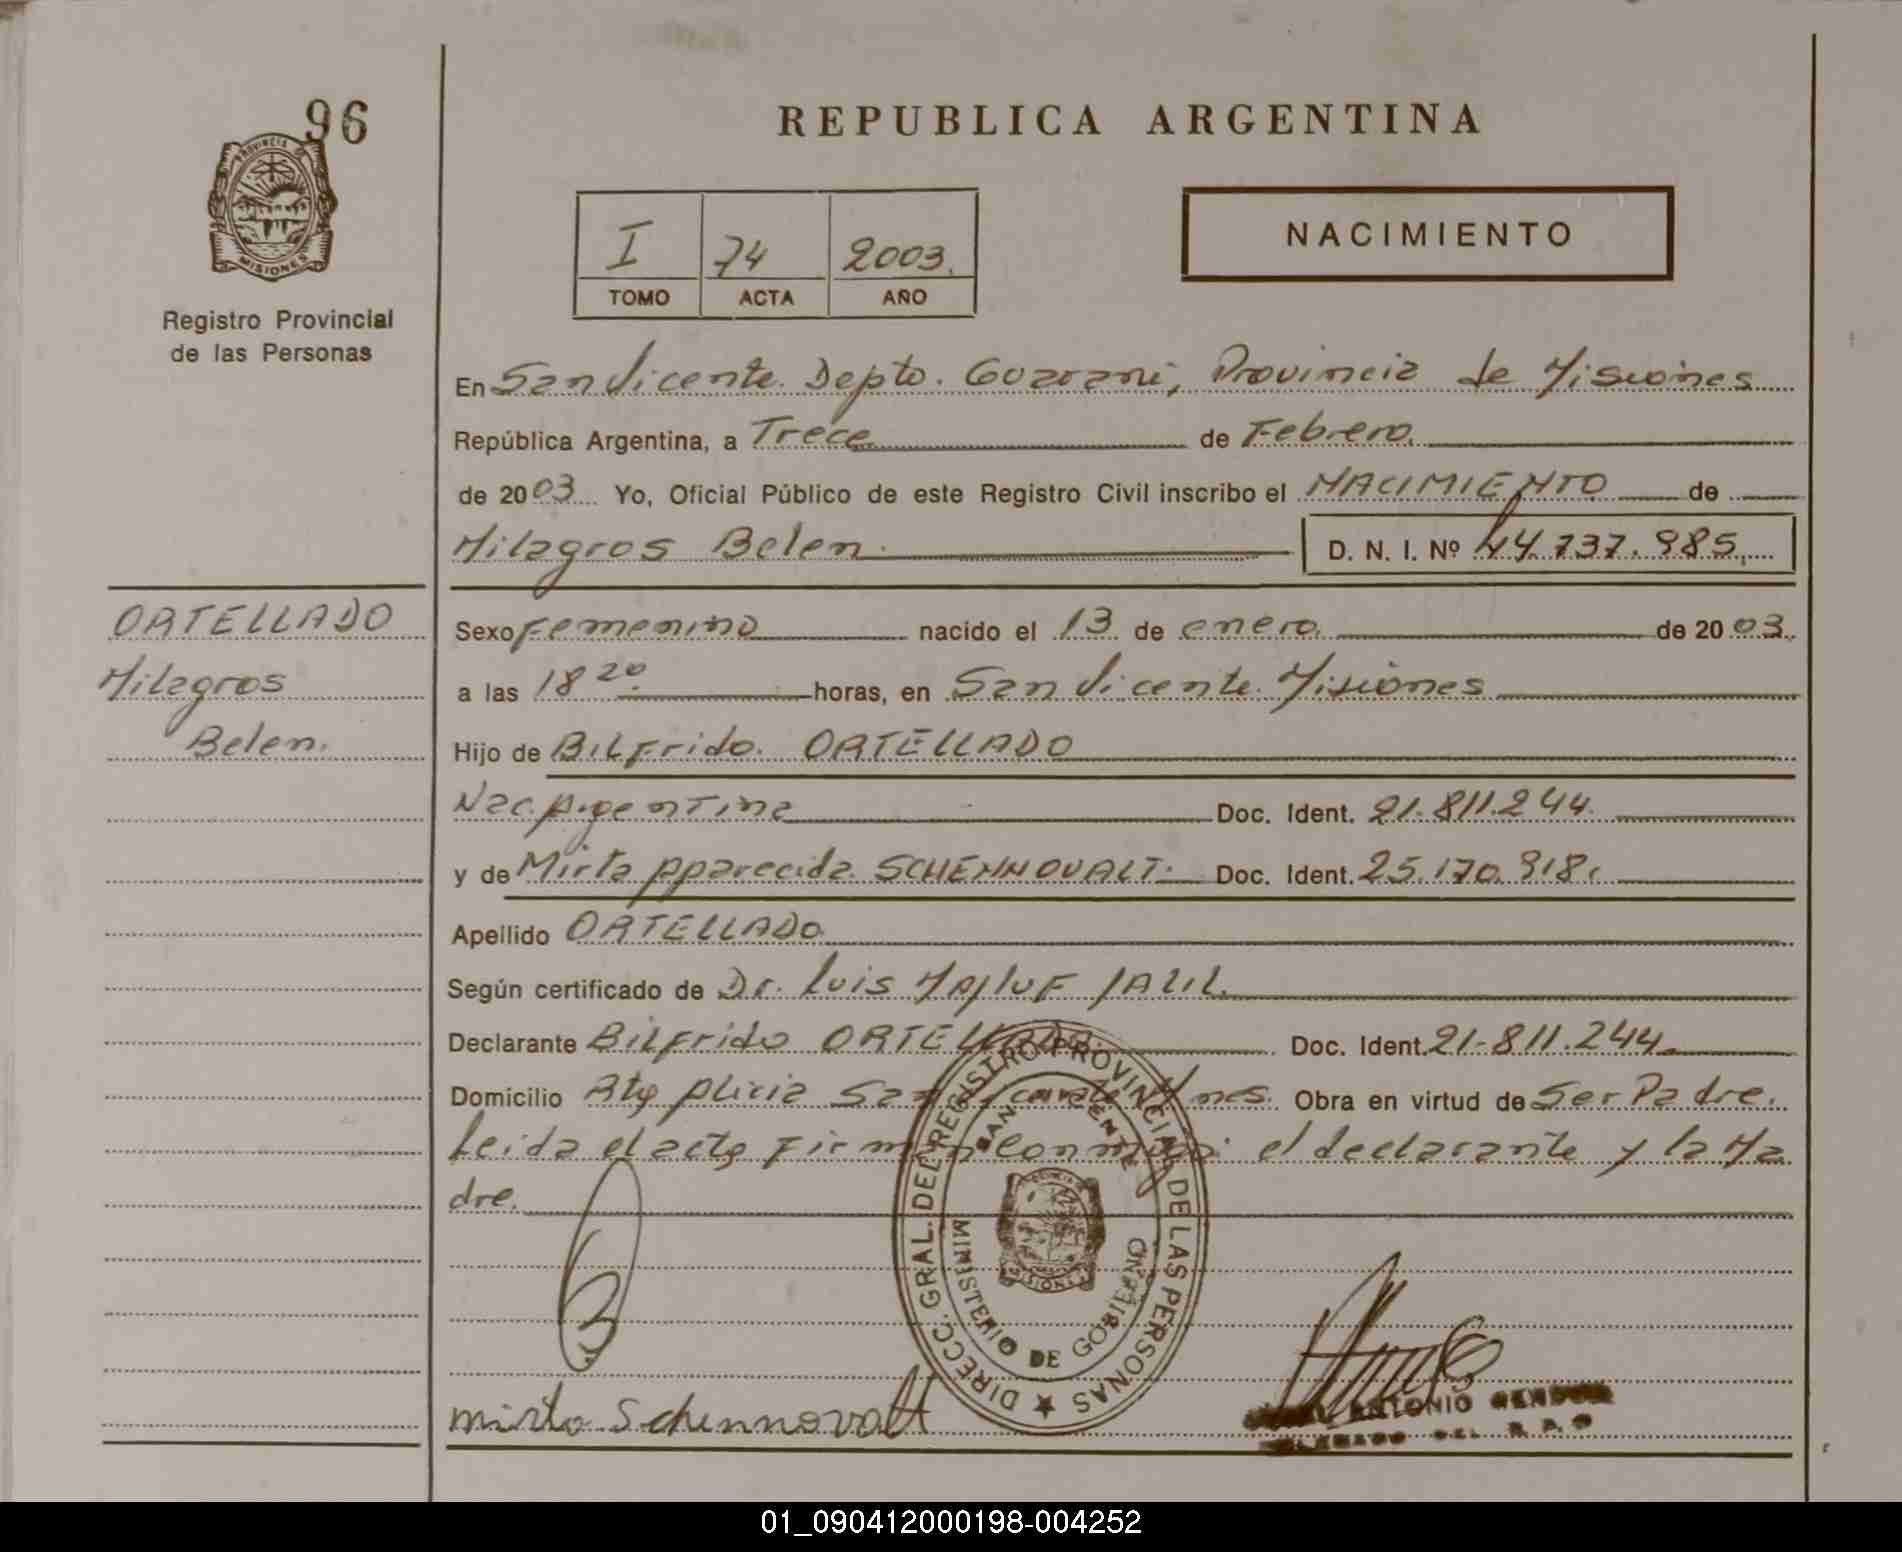 96
PROVINCIA DE
MISIONES
Registro Provincial
de las Personas
REPUBLICA ARGENTINA
I 74 2003.
TOMO ACTA AÑO
NACIMIENTO
En San Vicente. Depto. Guarani, Provincia de Misiones
República Argentina, a Trece de Febrero.
de 2003 Yo, Oficial Público de este Registro Civil inscribo el NACIMIENTO de
Milagros Belen. D. N. I. Nº 44.737.985,
ORTELLADO
Milagros
Belen.
Sexo Femenino nacido el 13 de enero de 2003.
a las 18 20 horas, en San Vicente. Misiones
Hijo de BILFrido. ORTELLADO
Nac. Argentina Doc. Ident. 21.811.244.
y de Mirta Apparecida SCHENNOVALT. Doc. Ident. 25.170.918.
Apellido ORTELLADO
Según certificado de Dr. Luis Majluf JALIL.
Declarante BILFrido ORTELLADO. Doc. Ident. 21-811.244
Domicilio San Vicente Mnes. Obra en virtud de Ser Padre.
Leida el acta Firman conmigo: el declarante y la Ma
dre.
DIRECC. GRAL. DEL REGISTRO PROVINCIAL DE LAS PERSONAS
SAN VICENTE
MINISTERIO DE GOBIERNO
MISIONES
mirta Schennovalt
ANTONIO
01_090412000198-004252